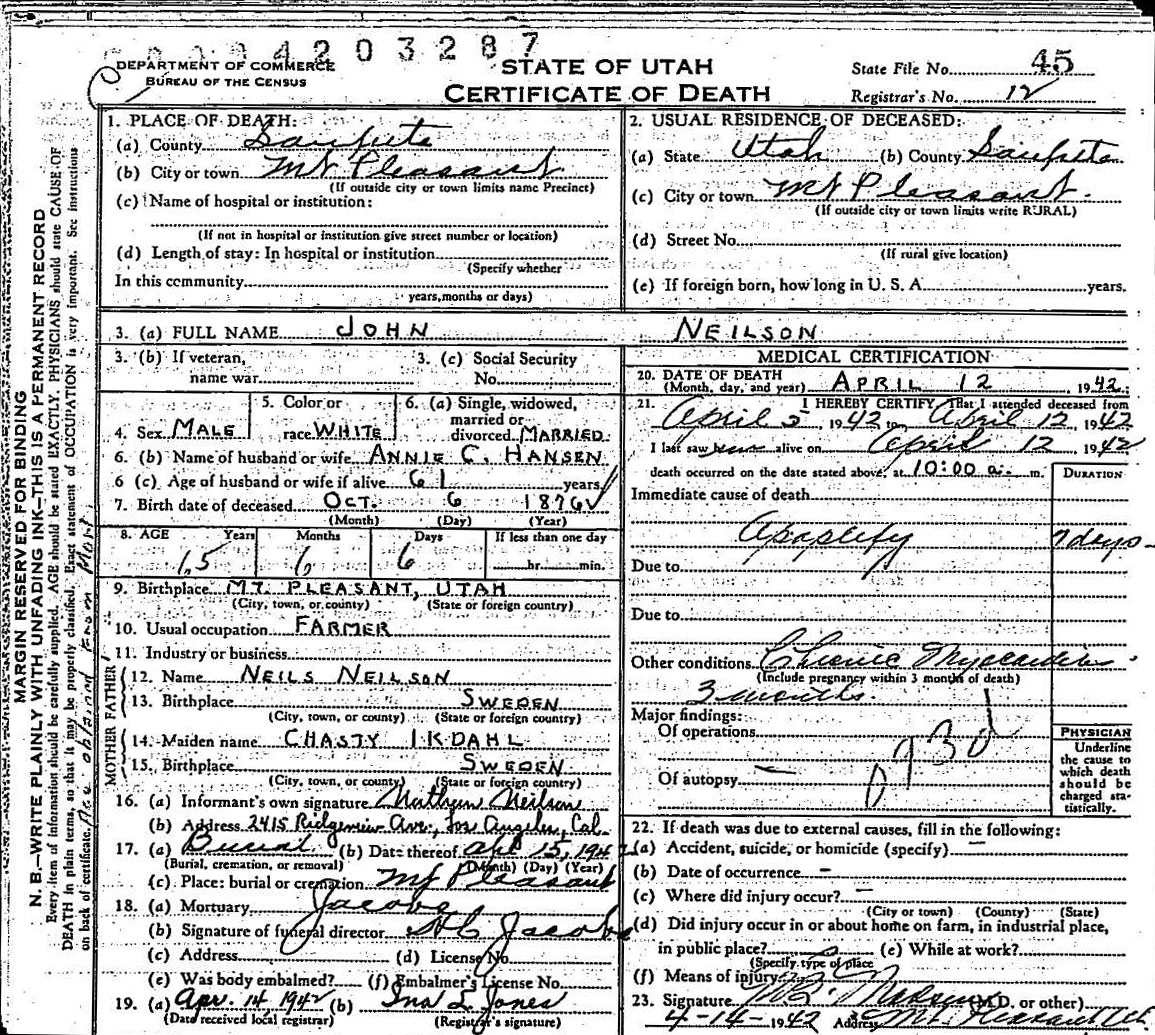 0004203287
DEPARTMENT OF COMMERCE
BUREAU OF THE CENSUS
STATE OF UTAH
CERTIFICATE OF DEATH
State File No. 45
Registrar's No. 12
MARGIN RESERVED FOR BINDING
N. B.—WRITE PLAINLY WITH UNFADING INK—THIS IS A PERMANENT RECORD
Every item of information should be carefully supplied. AGE should be stated EXACTLY. PHYSICIANS should state CAUSE OF
DEATH in plain terms, so that it may be properly classified. Exact statement of OCCUPATION is very important. See instructions
on back of certificate. Age obtained from
1. PLACE OF DEATH:
(a) County Sanpete
(b) City or town Mt Pleasant
(If outside city or town limits name Precinct)
(c) Name of hospital or institution:
(If not in hospital or institution give street number or location)
(d) Length of stay: In hospital or institution
(Specify whether
In this community
years, months or days)
2. USUAL RESIDENCE OF DECEASED:
(a) State Utah (b) County Sanpete
(c) City or town Mt Pleasant.
(If outside city or town limits write RURAL)
(d) Street No.
(If rural give location)
(e) If foreign born, how long in U. S. A. years.
3. (a) FULL NAME JOHN NEILSON
3. (b) If veteran,
name war
3. (c) Social Security
No.
4. Sex MALE
5. Color or
race WHITE
6. (a) Single, widowed,
married or
divorced MARRIED
6. (b) Name of husband or wife ANNIE C. HANSEN
6 (c) Age of husband or wife if alive 61 years
7. Birth date of deceased OCT. 6 1876
(Month) (Day) (Year)
8. AGE Years Months Days If less than one day
65 6 6 hr. min.
9. Birthplace MT. PLEASANT, UTAH
(City, town, or county) (State or foreign country)
10. Usual occupation FARMER
11. Industry or business
FATHER
12. Name NEILS NEILSON
13. Birthplace SWEDEN
(City, town, or county) (State or foreign country)
MOTHER
14. Maiden name CHASTY IKDAHL
15. Birthplace SWEDEN
(City, town, or county) (State or foreign country)
16. (a) Informant's own signature Neilson
(b) Address 2415 Ridgeview Ave., Los Angeles, Cal.
17. (a) Burial (b) Date thereof Apl 15, 1942
(Burial, cremation, or removal) (Month) (Day) (Year)
(c) Place: burial or cremation Mt Pleasant
18. (a) Mortuary Jacobs
(b) Signature of funeral director Jacobs
(c) Address (d) License No.
(e) Was body embalmed? (f) Embalmer's License No.
19. (a) Apr. 14 1942 (b) Ina L Jones
(Date received local registrar) (Registrar's signature)
MEDICAL CERTIFICATION
20. DATE OF DEATH
(Month, day, and year) APRIL 12, 1942
21. I HEREBY CERTIFY That I attended deceased from
April 5, 1942 to April 12, 1942
I last saw him alive on April 12 1942
death occurred on the date stated above, at 10:00 a. m.
DURATION
Immediate cause of death
Apoplexy 7 days
Due to
Due to
Other conditions Chronic Myocarditis
(Include pregnancy within 3 months of death)
3 months
Major findings:
Of operations
Of autopsy —
93d
PHYSICIAN
Underline
the cause to
which death
should be
charged sta-
tistically.
22. If death was due to external causes, fill in the following:
(a) Accident, suicide, or homicide (specify) —
(b) Date of occurrence —
(c) Where did injury occur? —
(City or town) (County) (State)
(d) Did injury occur in or about home on farm, in industrial place,
in public place? (e) While at work?
(Specify type of place
(f) Means of injury
23. Signature Madsen (M.D. or other)
4-14-1942 Address Mt. Pleasant Ut.